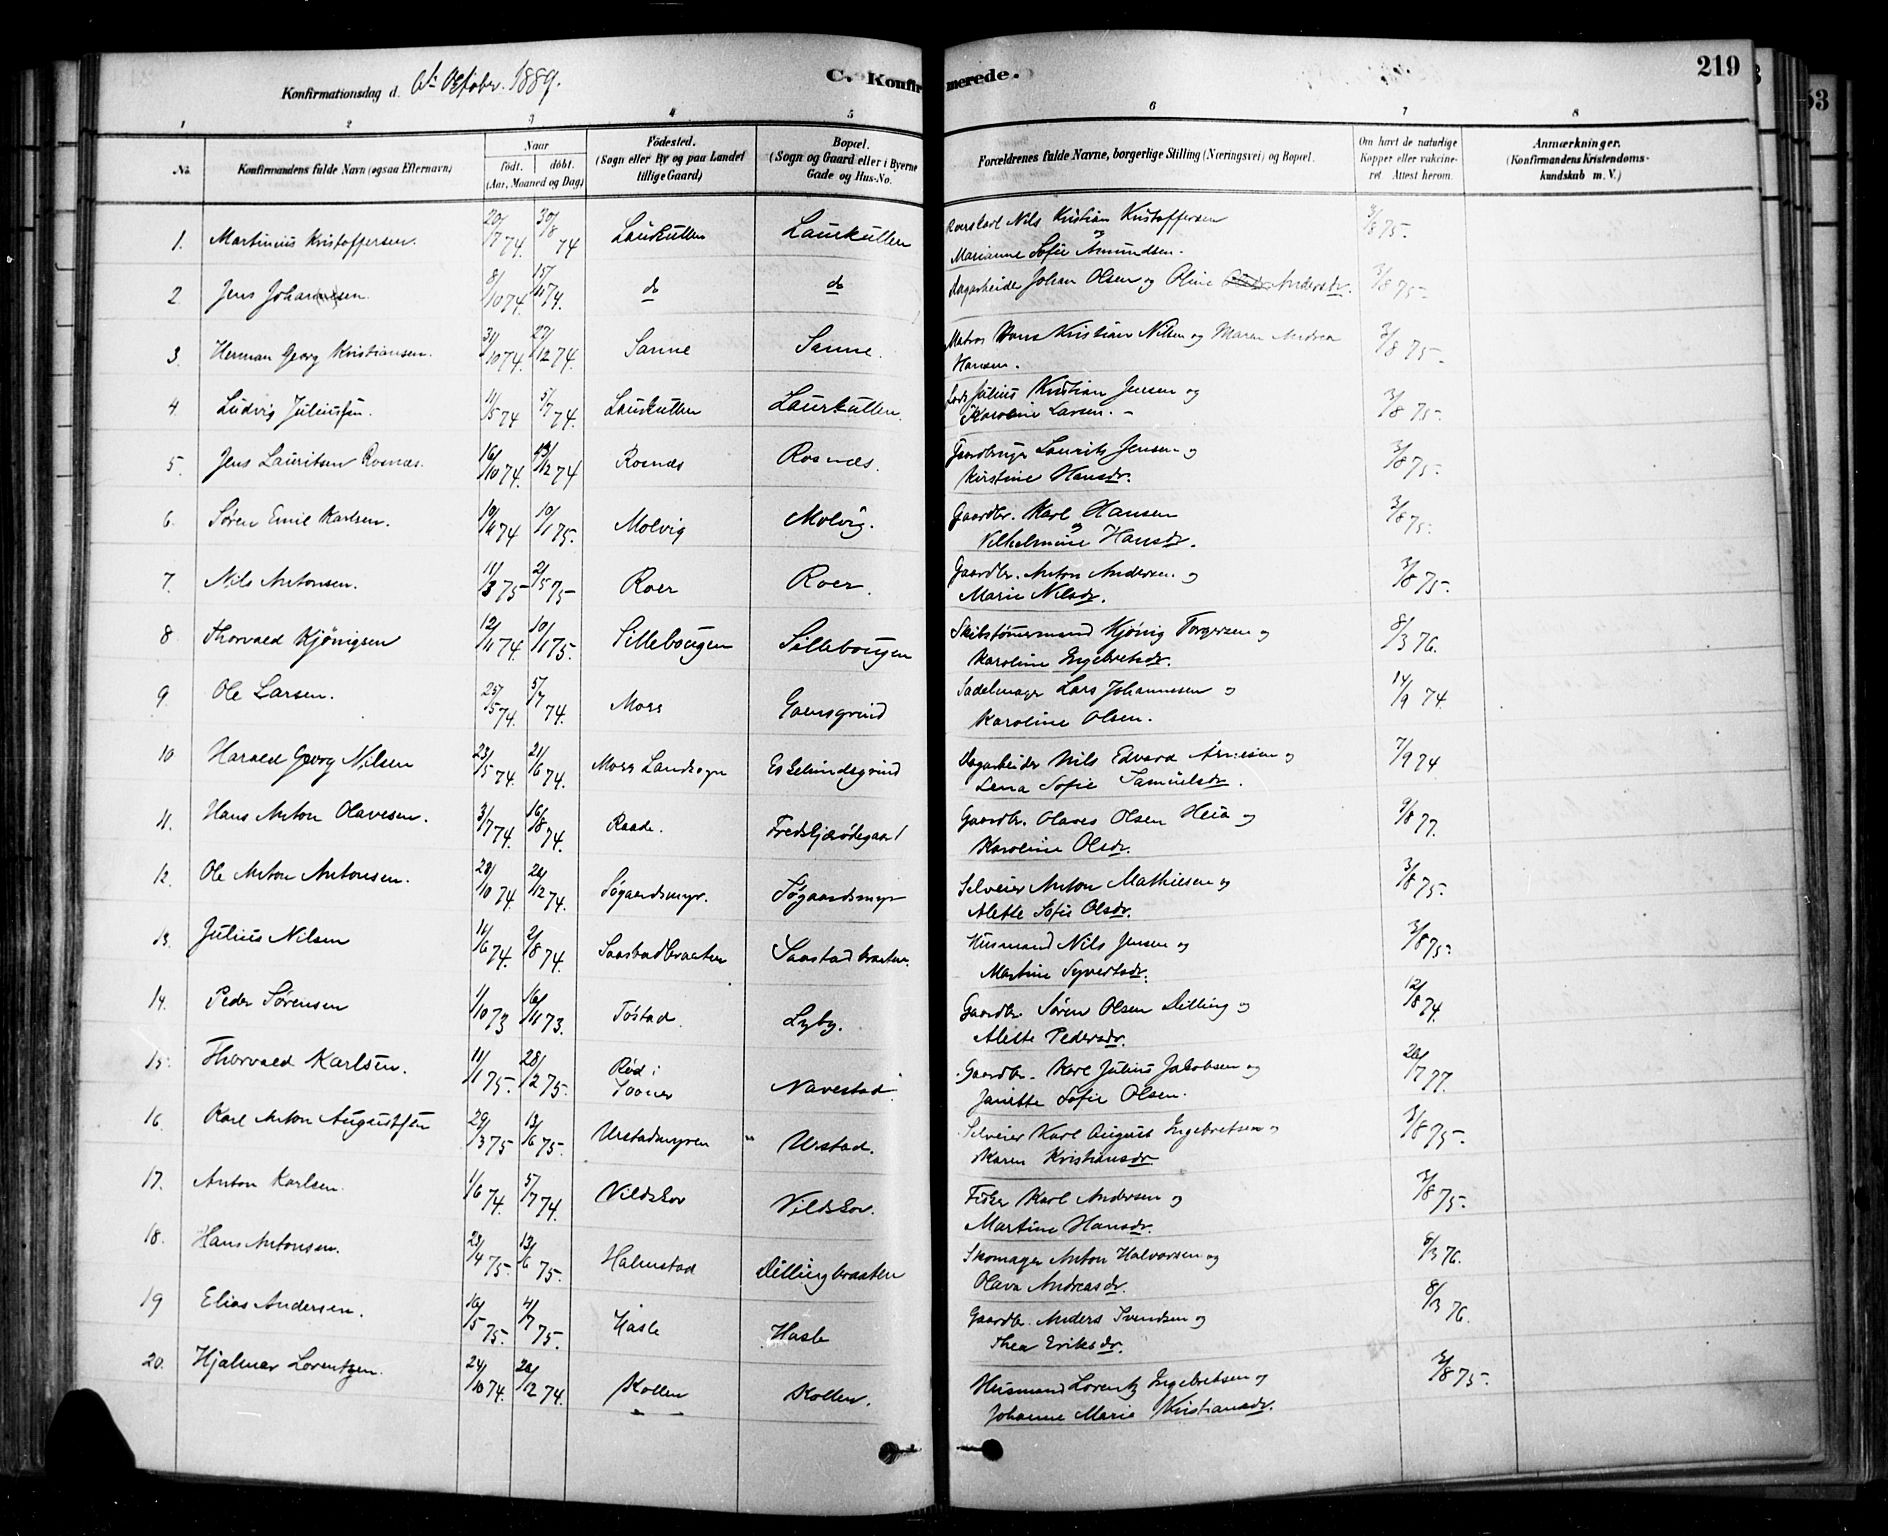 Konfirmationsdag d. 6te October 1889.
C. Konfirmerede.
219
53
1 2 3 4 5 6 7 8
No.
Konfirmandens fulde Navn (ogsaa Efternavn)
Naar
födt. döbt.
(Aar, Maaned og Dag)
Födested.
(Sogn eller By og paa Landet
tillige Gaard)
Bopæl.
(Sogn og Gaard eller i Byerne
Gade og Hus-No.
Forældrenes fulde Navne, borgerlige Stilling (Næringsvei) og Bopæl.
Om havt de naturlige
Kopper eller vakcine-
ret. Attest herom.
Anmærkninger.
(Konfirmandens Kristendoms-
kundskab m. V.)
1. Martinius Kristoffersen. 20/7 74. 30/8 74 Laurkullen Laurkullen Nils Kristian Kristoffersen 3/8 75.
og Marianne Sofie Amundsen.
2 Jens Johannesen. 8/10 74. 15/11 74. do do Dagarbeider Johan Olsen og Oline Andersdr. 3/8 75.
3. Herman Georg Kristiansen. 31/10 74. 27/12 74. Sanne Sanne. Matros Hans Kristian Nilsen og Maren Andrea 3/8 75.
Hansen.
4. Ludvig Juliussen. 11/5 74 5/7 74. Laurkullen Laurkullen. Lods Julius Kristian Jensen og 3/8 75.
Karoline Larsen.
5. Jens Lauritsen Rosnæs. 16/10 74. 13/12 74 Rosnæs Rosnæs. Gaardbruger Laurits Jensen og 3/8 75.
Kirstine Hansdr.
6. Søren Emil Karlsen. 19/11 74 10/1 75. Molvig Molvig. Gaardbr. Karl Hansen 3/8 75.
og Vilhelmine Hansdr.
7. Nils Antonsen. 11/3 75 2/5 75 Roer Roer. Gaardbr. Anton Andersen og 3/8 75.
Marie Nilsdr.
8 Thorvald Kjönigsen 12/11 74. 10/1 75. Sillebougen Sillebougen Skibstømermand Kjönig Torgersen og 8/3 76.
Karoline Ingebretsdr.
9. Ole Larsen. 25/5 74. 5/7 74. Moss Goensgrind Sadelmager Lars Johannesen og 14/9 74.
Karoline Olsen.
10 Harald Georg Nilsen 23/5 74. 21/6 74. Moss Landsogn Eskelundsgrind Dagarbeider Nils Edvard Arnesen og 7/9 74
Lena Sofie Samuelsdr.
11. Hans Anton Olavesen. 3/7 74. 16/8 74. Raade. Gaardbr. Olaves Olsen Heia og 9/8 77.
Karoline Olsdr.
12. Ole Anton Antonsen. 28/10 74. 26/12 74. Søgaardsmyr. Søgaardsmyr Selveier Anton Mathiesen og 3/8 75.
Alette Sofie Olsdr.
13. Julius Nilsen 14/6 74. 2/8 74. Saastadbraaten Saastadbraaten. Husmand Nils Jensen og 3/8 75.
Martine Syvertsdr.
14. Peder Sørensen 11/10 73 16/11 73. Tøstad. Lyby. Gaardbr. Søren Olsen Dilling og 12/8 74.
Alette Pedersdr.
15. Thorvald Karlsen. 11/1 75. 28/2 75. Rød i Navestad Gaardbr. Karl Julius Jakobsen og 20/7 77.
Janette Sofie Olsen.
16. Karl Anton Augustsen 29/3 75 13/6 75. Urstadmyren " Urstad. Selveier Karl August Ingebretsen og 3/8 75.
Karen Kristiansdr.
17. Anton Karlsen. 1/6 74. 5/7 74. Vildskov Vildskov. Fisker Karl Andersen og 3/8 75.
Martine Hansdr.
18. Hans Antonsen. 23/4 75. 13/6 75. Halmstad Dillingbraaten Skomager Anton Halvorsen og 8/3 76.
Olava Andreasdr.
19 Elias Andersen. 16/5 75. 4/7 75. Hasle Hasle Gaardbr. Anders Svendsen og 8/3 76.
Thea Eriksdr.
20. Hjalmar Lorentzen. 24/10 74. 26/12 74. Kollen Kollen. Husmand Lorentz Ingebretsen og 3/8 75.
Johanne Marie Kristiansdr.